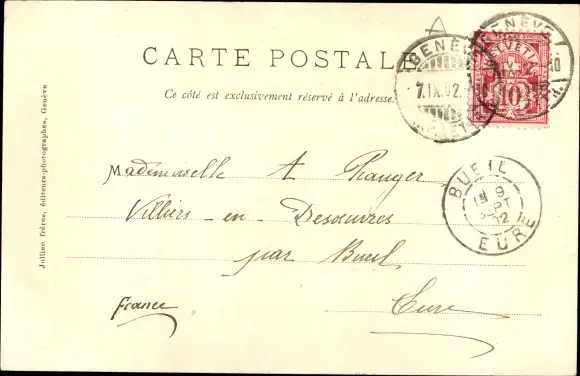 A
CARTE POSTALE
Ce côté est exclusivement réservé à l'adresse.
GENÈVE
7.IX.02
GENÈVE
HELVETIA
10
BUEIL
9
SEPT
02
EURE
Mademoiselle A
Villiers-en-Desoeuvres
par Bueil
France
Eure
Jullien frères, éditeurs-photographes, Genève